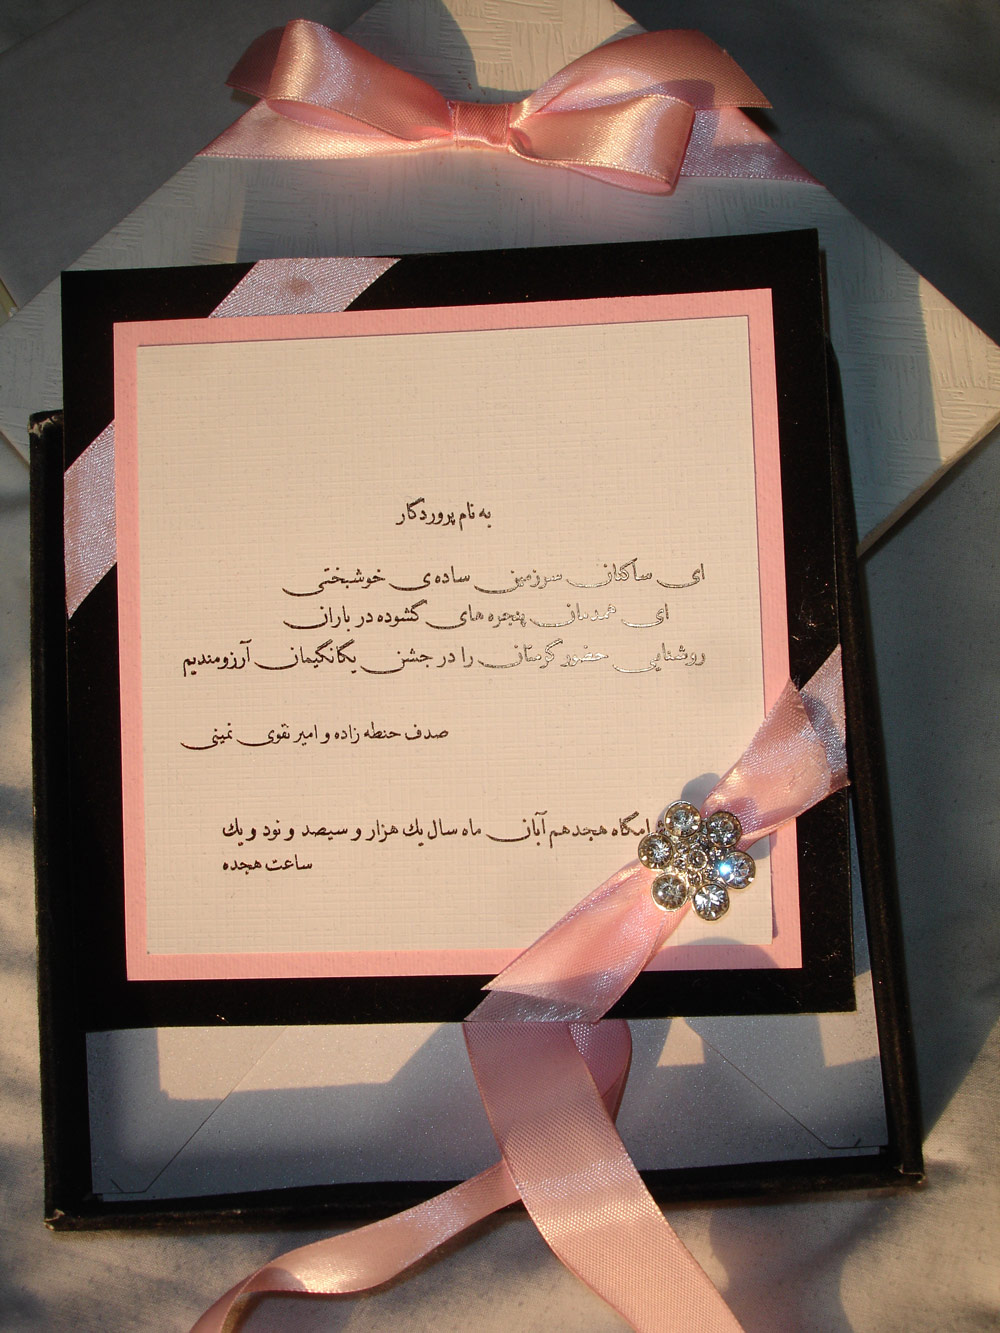 به نام پروردگار
ای ساکنان سرزمین ساده‌ی خوشبختی
ای همدمان پنجره های گشوده در باران
روشنایی حضور گرمتان را در جشن یگانگیمان آرزومندیم
صدف حنطه زاده و امیر نقوی نمینی
هجدهم آبان ماه سال یك هزار و سیصد و نود و یك
ساعت هجده